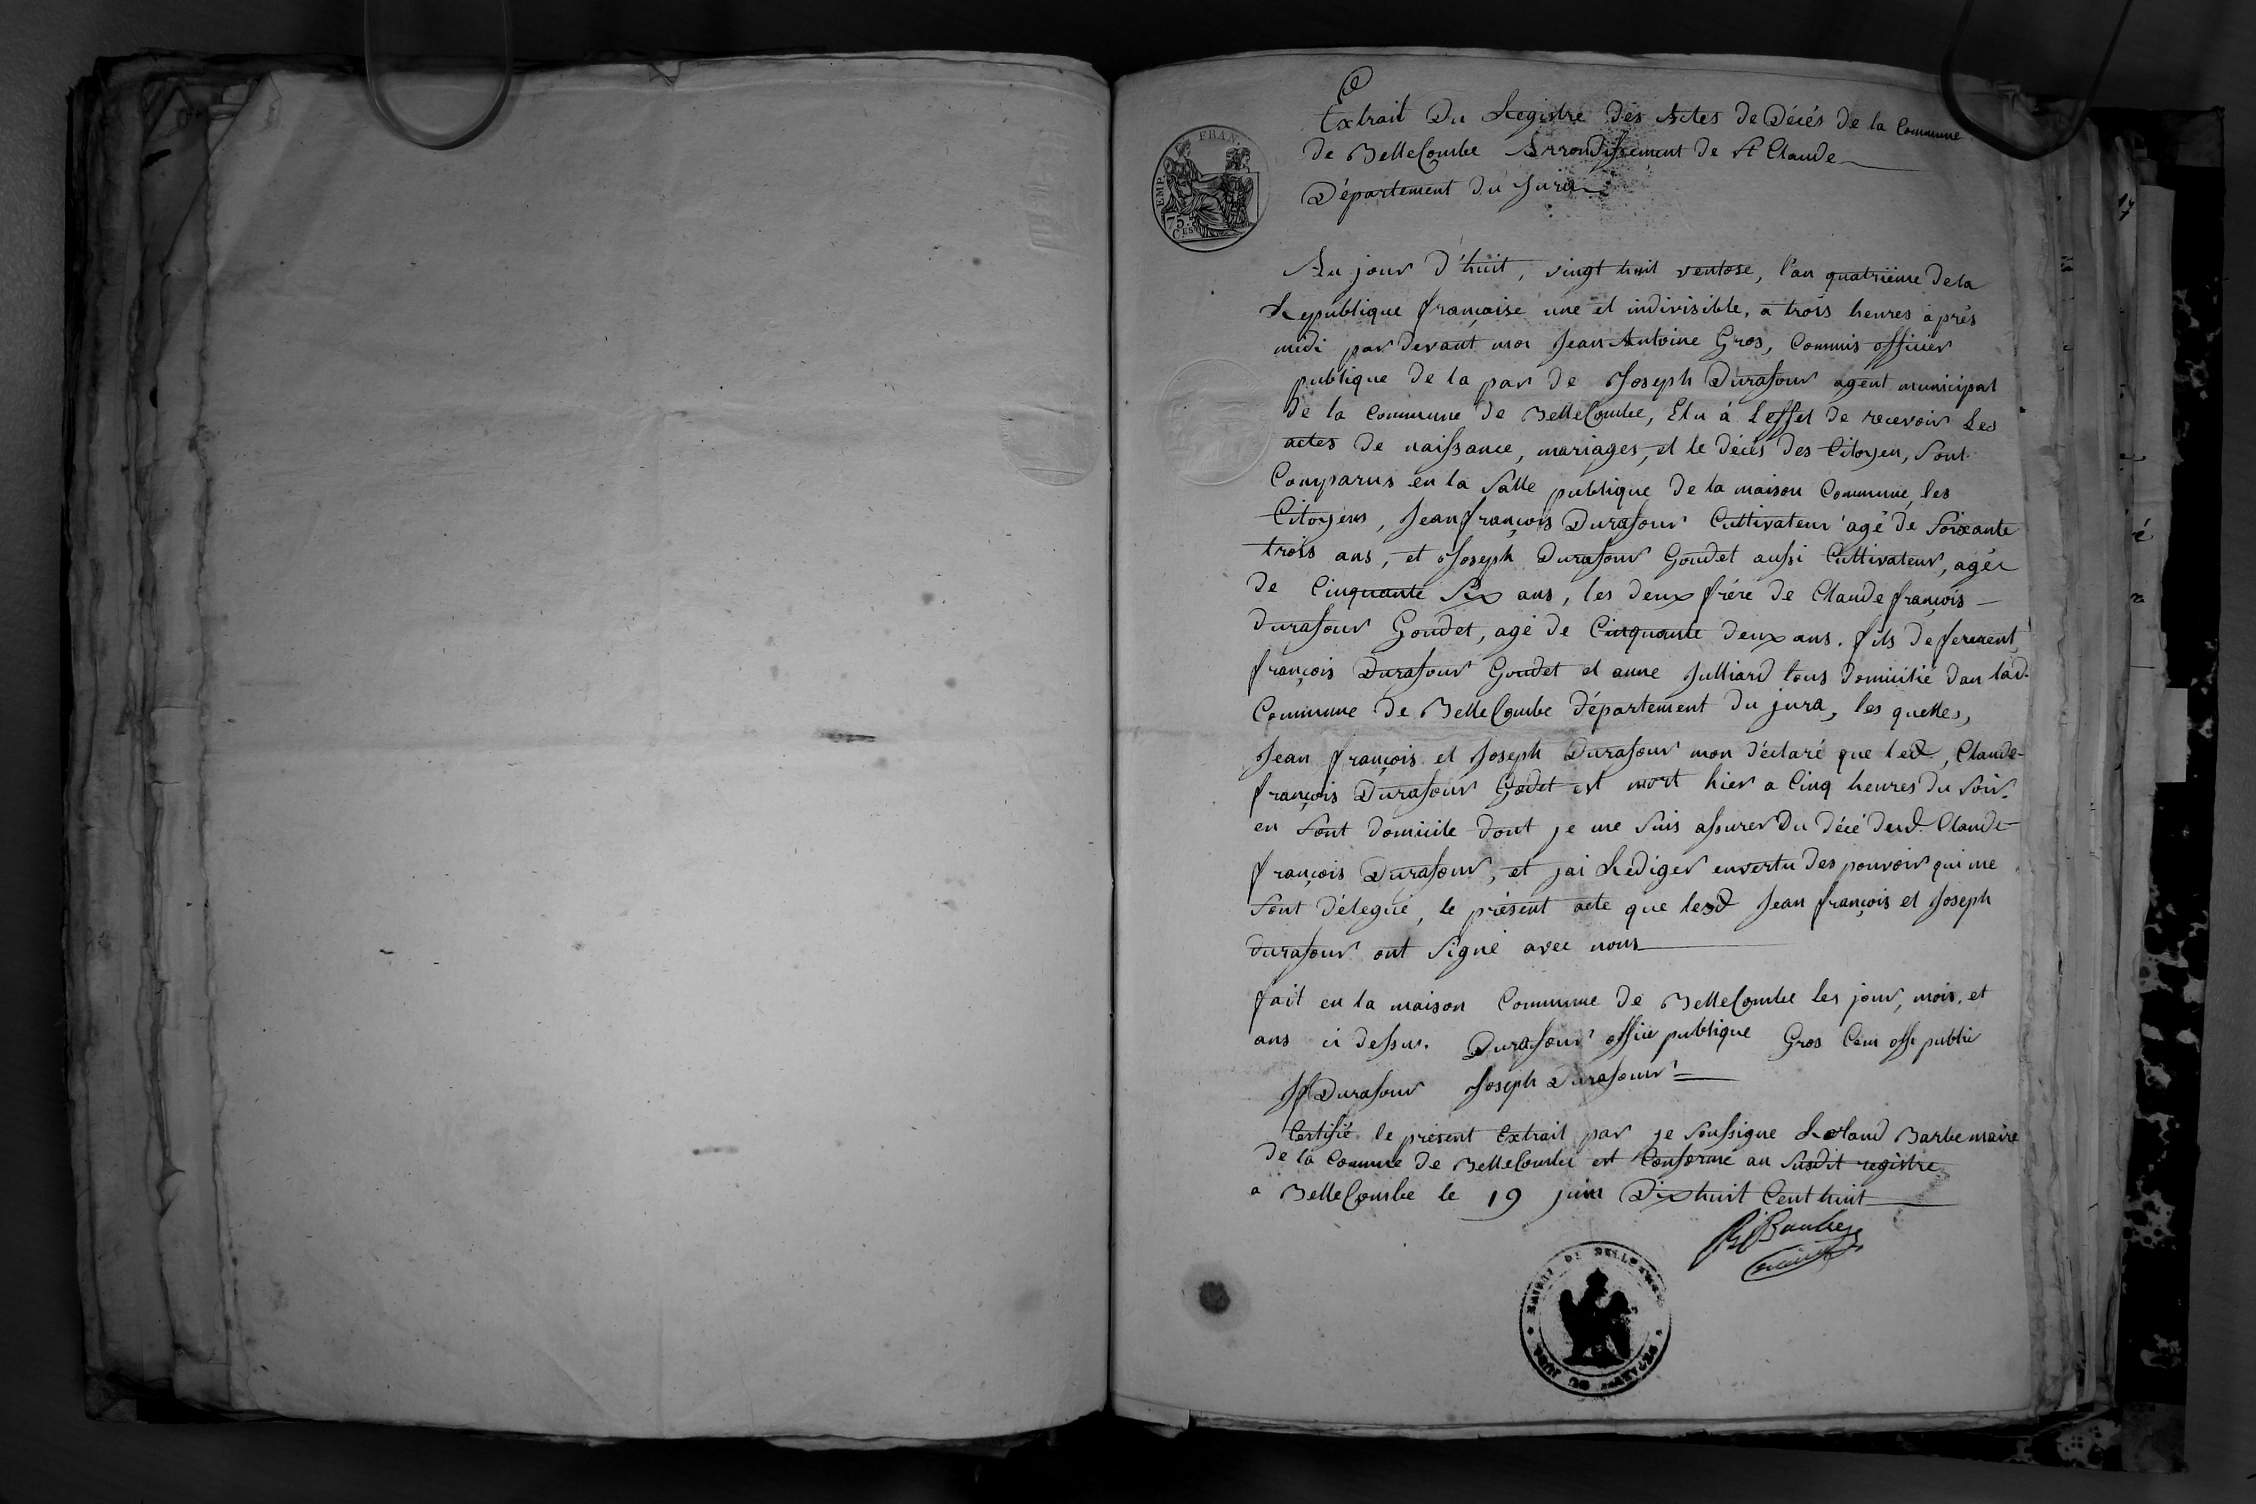 Extrait Du Registre Des Actes De Décés De la Commune
De BelleCombe Arrondissement De St Claude
Département Du Jura
EMP. FRAN.
75.
Ces
Au jour d'huit, vingt huit ventose, l'an quatriéme De la
Republique francaise une et indivisible, a trois heures aprés
midi par devant moi Jean Antoine Gros, Commis officier
publique De la par De Joseph Durafour agent municipal
De la Commune De BelleCombe, Elu á L'effet De recevoir Les
actes De naissance, mariages, et le Décés Des Citoyen, Sont
Comparus en la Salle publique De la maison Commune, les
Citoyens, Jean françois Durafour Cultivateur agé De Soixante
trois ans, et Joseph Durafour Goudet aussi Cultivateur, agés
De Cinquante Six ans, les deux frére De Claude françois
Durafour Goudet, agé De Cinquante Deux ans. fils De ferement,
françois Durafour Goudet et anne Julliard tous Domicilié Dan lad.
Commune De BelleCombe Département Du jura, les quelles,
Jean françois et Joseph Durafour mon Déclaré que led, Claude
françois Durafour Godet est mort hier a Cinq heures Du Soir.
en Sont Domicile Dont je me Suis assurer Du Décé Dud. Claude
françois Durafour, et jai Rediger envertu Des pouvoir qui me
Sont Délegué, le présent acte que lesd Jean françois et Joseph
Durafour ont Signé avec nous
fait en la maison Commune De BelleCombe les jour, mois, et
ans ci dessus. Durafour officie publique Gros Com offi public
Jf Durafour Joseph Durafour
Certifié le présent Extrait par je Soussigne Roland Barbe maire
De la Commune De BelleCombe est Conforme au Susdit registre
a BelleCombe le 19 juin Dix huit Cent huit
R Barbe
maire
MAIRIE DE BELLECOMBE * DEPARTt DU JURA *